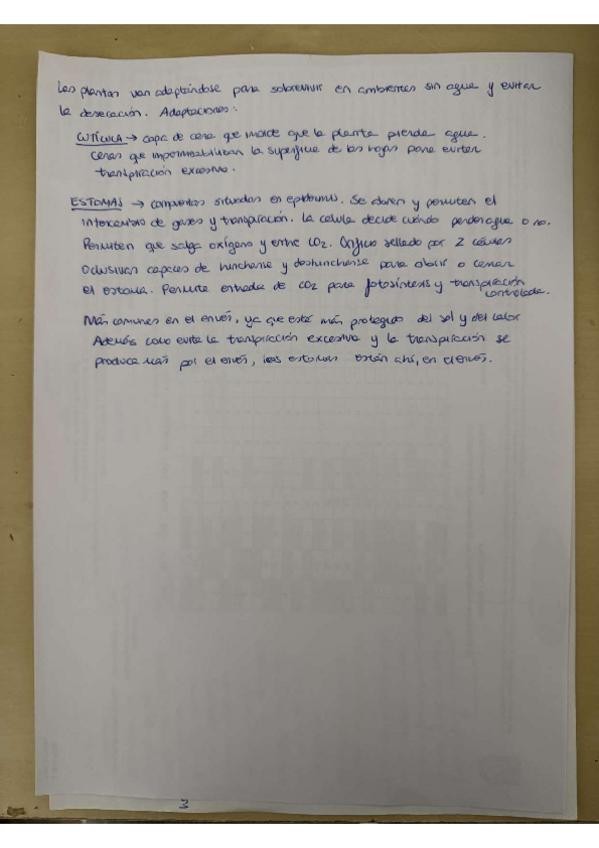 Las plantas van adaptándose para sobrevivir en ambientes sin agua y evitar
la desecación. Adaptaciones:
CUTÍCULA → capa de cera que impide que la planta pierda agua.
Ceras que impermeabilizan la superficie de las hojas para evitar
transpiración excesiva.
ESTOMAS → compuertas situadas en epidermis. Se abren y permiten el
intercambio de gases y transpiración. La célula decide cuándo perder agua o no.
Permiten que salga oxígeno y entre CO2. Orificio sellado por 2 células
oclusivas capaces de hincharse y deshincharse para abrir o cerrar
el estoma. Permite entrada de CO2 para fotosíntesis y transpiración
controlada.
Más comunes en el envés, ya que está más protegido del sol y del calor
Además como evita la transpiración excesiva y la transpiración se
produce más por el envés, los estomas están ahí, en el envés.
3